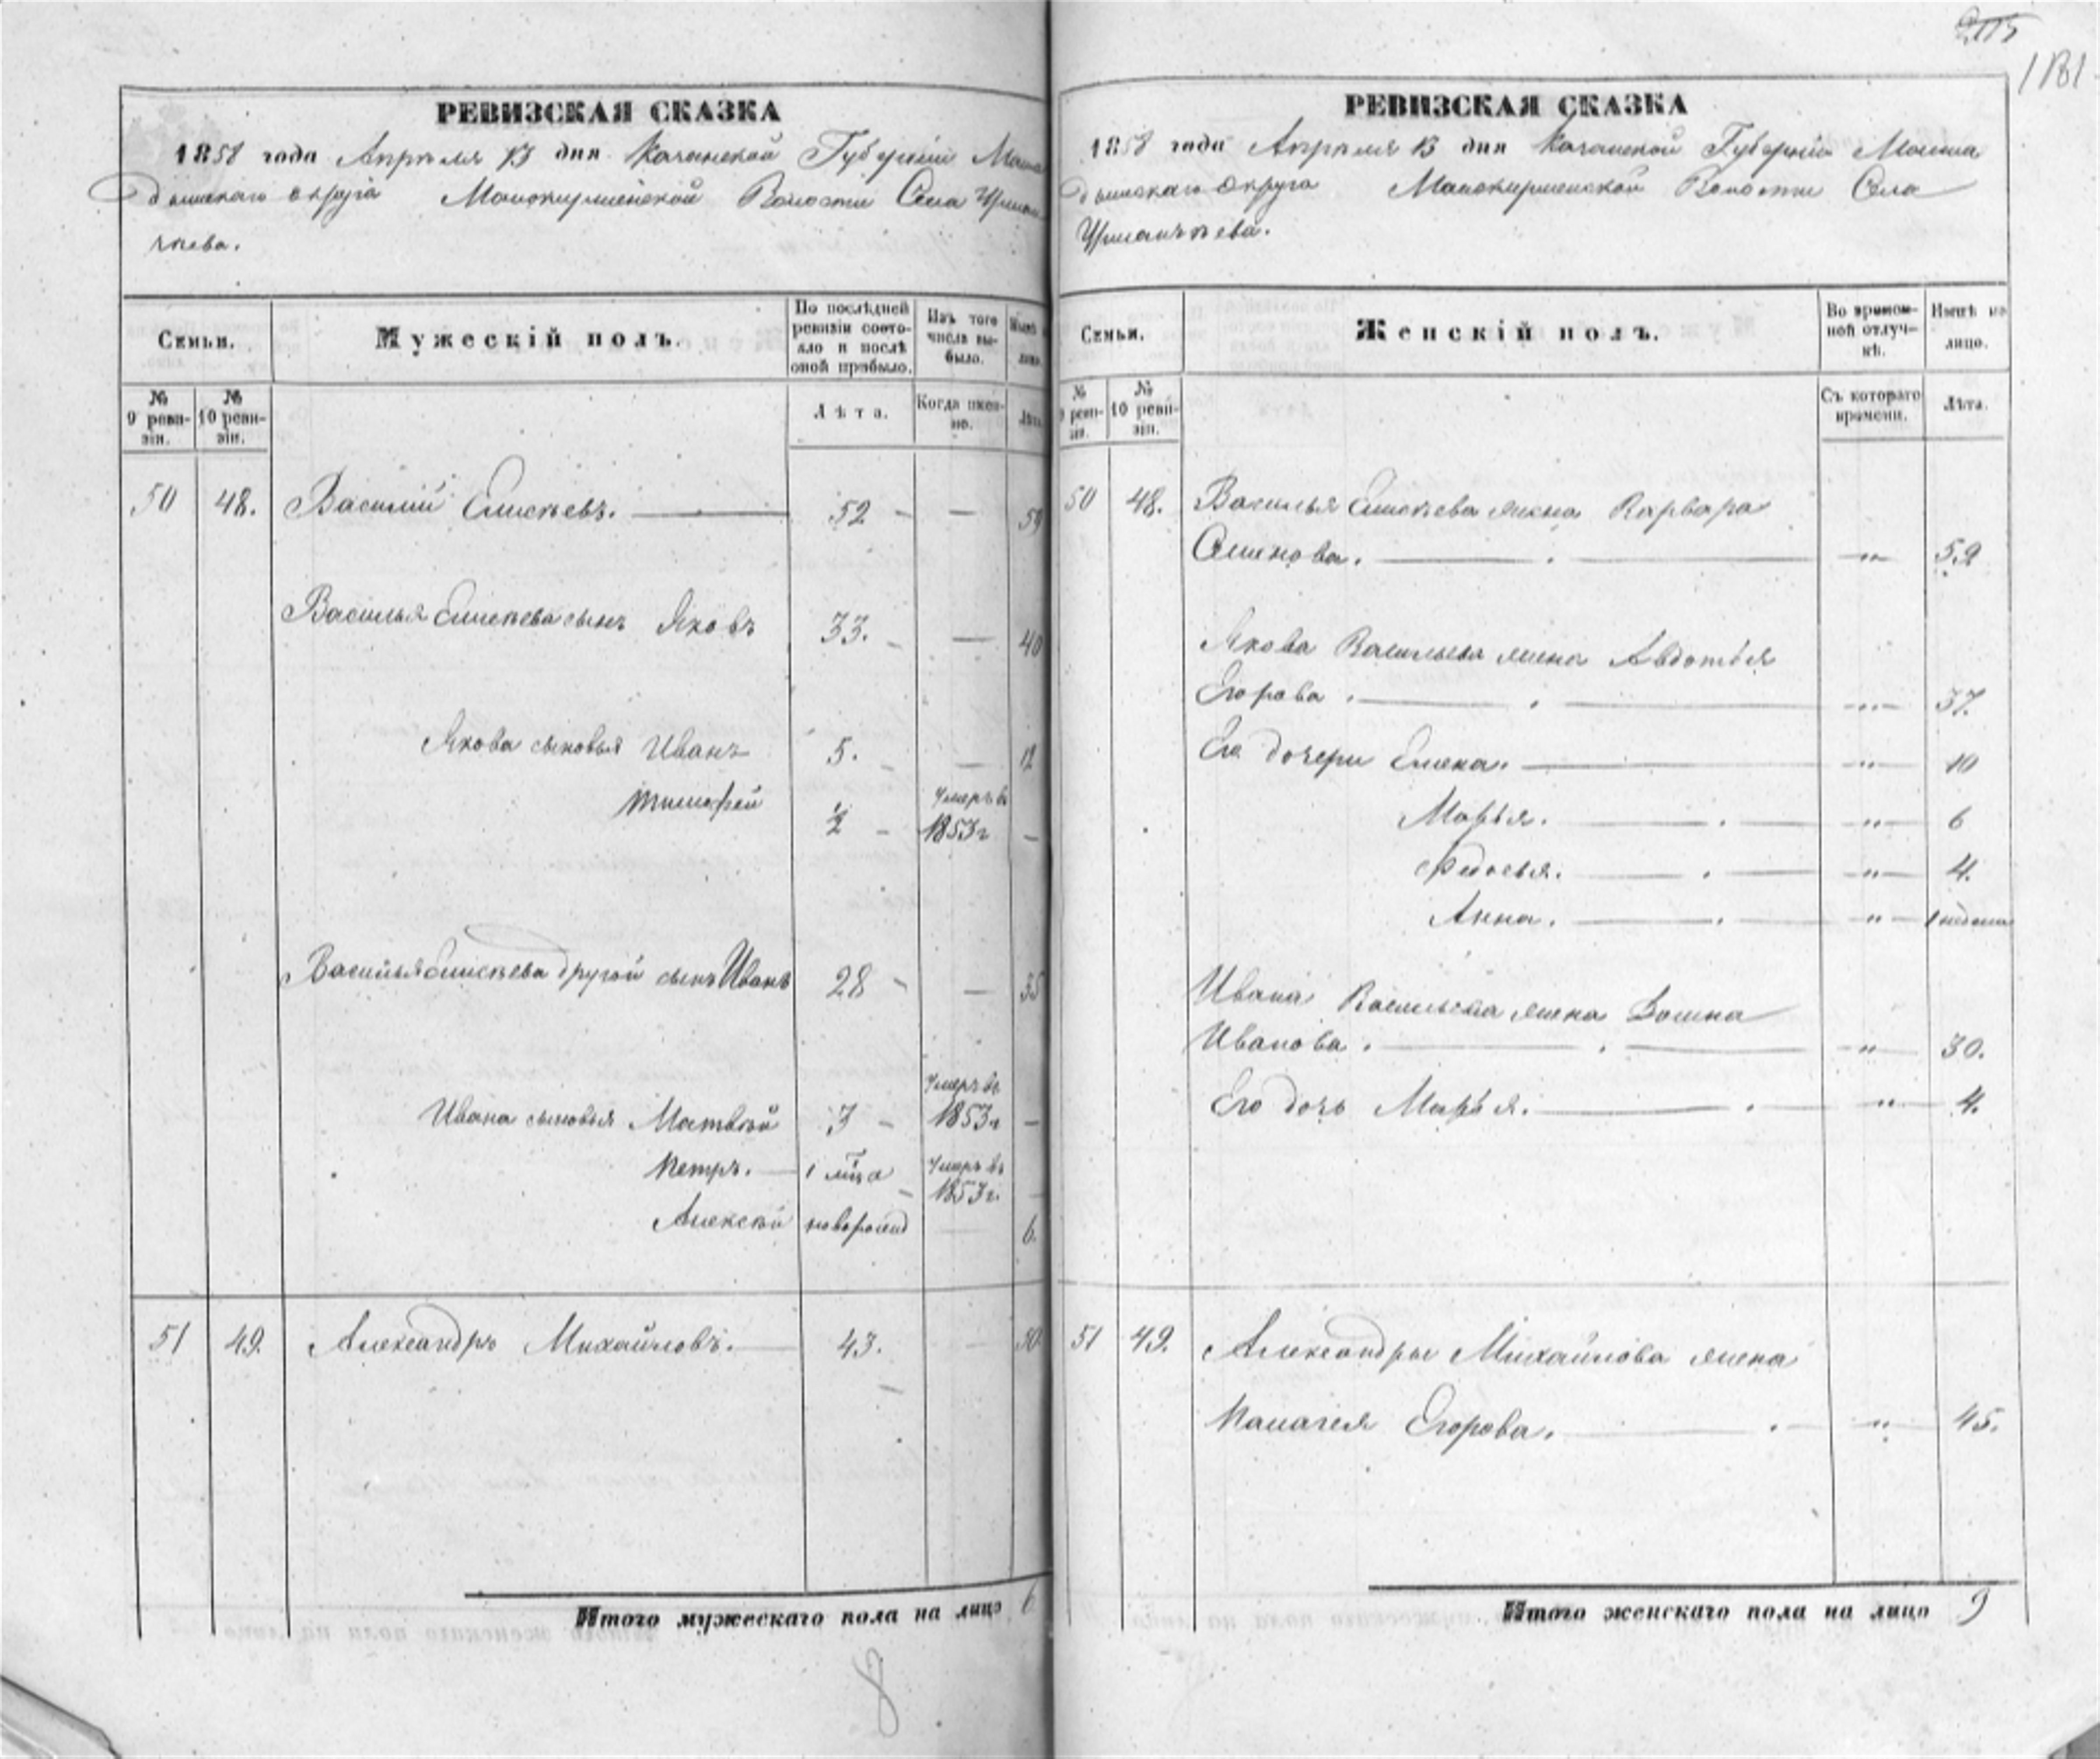 205
181
РЕВИЗСКАЯ СКАЗКА
1858 года Апрѣля 13 дня Казанской Губерніи Мама
дышскаго округа Малокирменской Волости Села Урман
чѣева.
Семьи.
Мужескій полъ.
По послѣдней ревизіи состояло и послѣ оной прибыло.
Изъ того числа выбыло.
№ 9 ревизіи.
№ 10 ревизіи.
Лѣта.
Когда именно.
Лѣта
50 48. Василій Елисѣевъ. 52 — 59
Василья Елисѣева сынъ Яковъ 33. — 40
Якова сыновья Иванъ 5. — 12
Тимофей ½ Умеръ въ 1853г —
Василья Елисѣева другой сынъ Иванъ 28 — 35
Ивана сыновья Матвѣй 3 Умеръ въ 1853г —
Петръ. 1 мца Умеръ въ 1853г. —
Алексѣй новорожд — 6.
51 49. Александръ Михайловъ. 43. — 50
Итого мужескаго пола на лицо 6
8
РЕВИЗСКАЯ СКАЗКА
1858 года Апрѣля 13 дня Казанской Губерніи Мама
дышскаго Округа Малокирменской Волости Села
Урманчѣева.
Семьи.
Женскій полъ.
Во временной отлучкѣ.
Нынѣ на лицо.
№ 9 ревизіи.
№ 10 ревизіи.
Съ котораго времени.
Лѣта.
50 48. Василья Елисѣева жена Варвара
Семенова. „ 59
Якова Васильева жена Авдотья
Егорова. „ 37.
Его дочери Елена. „ 10
Марья. „ 6
Федосья. „ 4.
Анна. „ 1 недели
Ивана Васильева жена
Иванова. „ 30.
Его дочь Марья. „ 4.
51 49. Александры Михайлова жена
Палагея Егорова. „ 45.
Итого женскаго пола на лицо 9